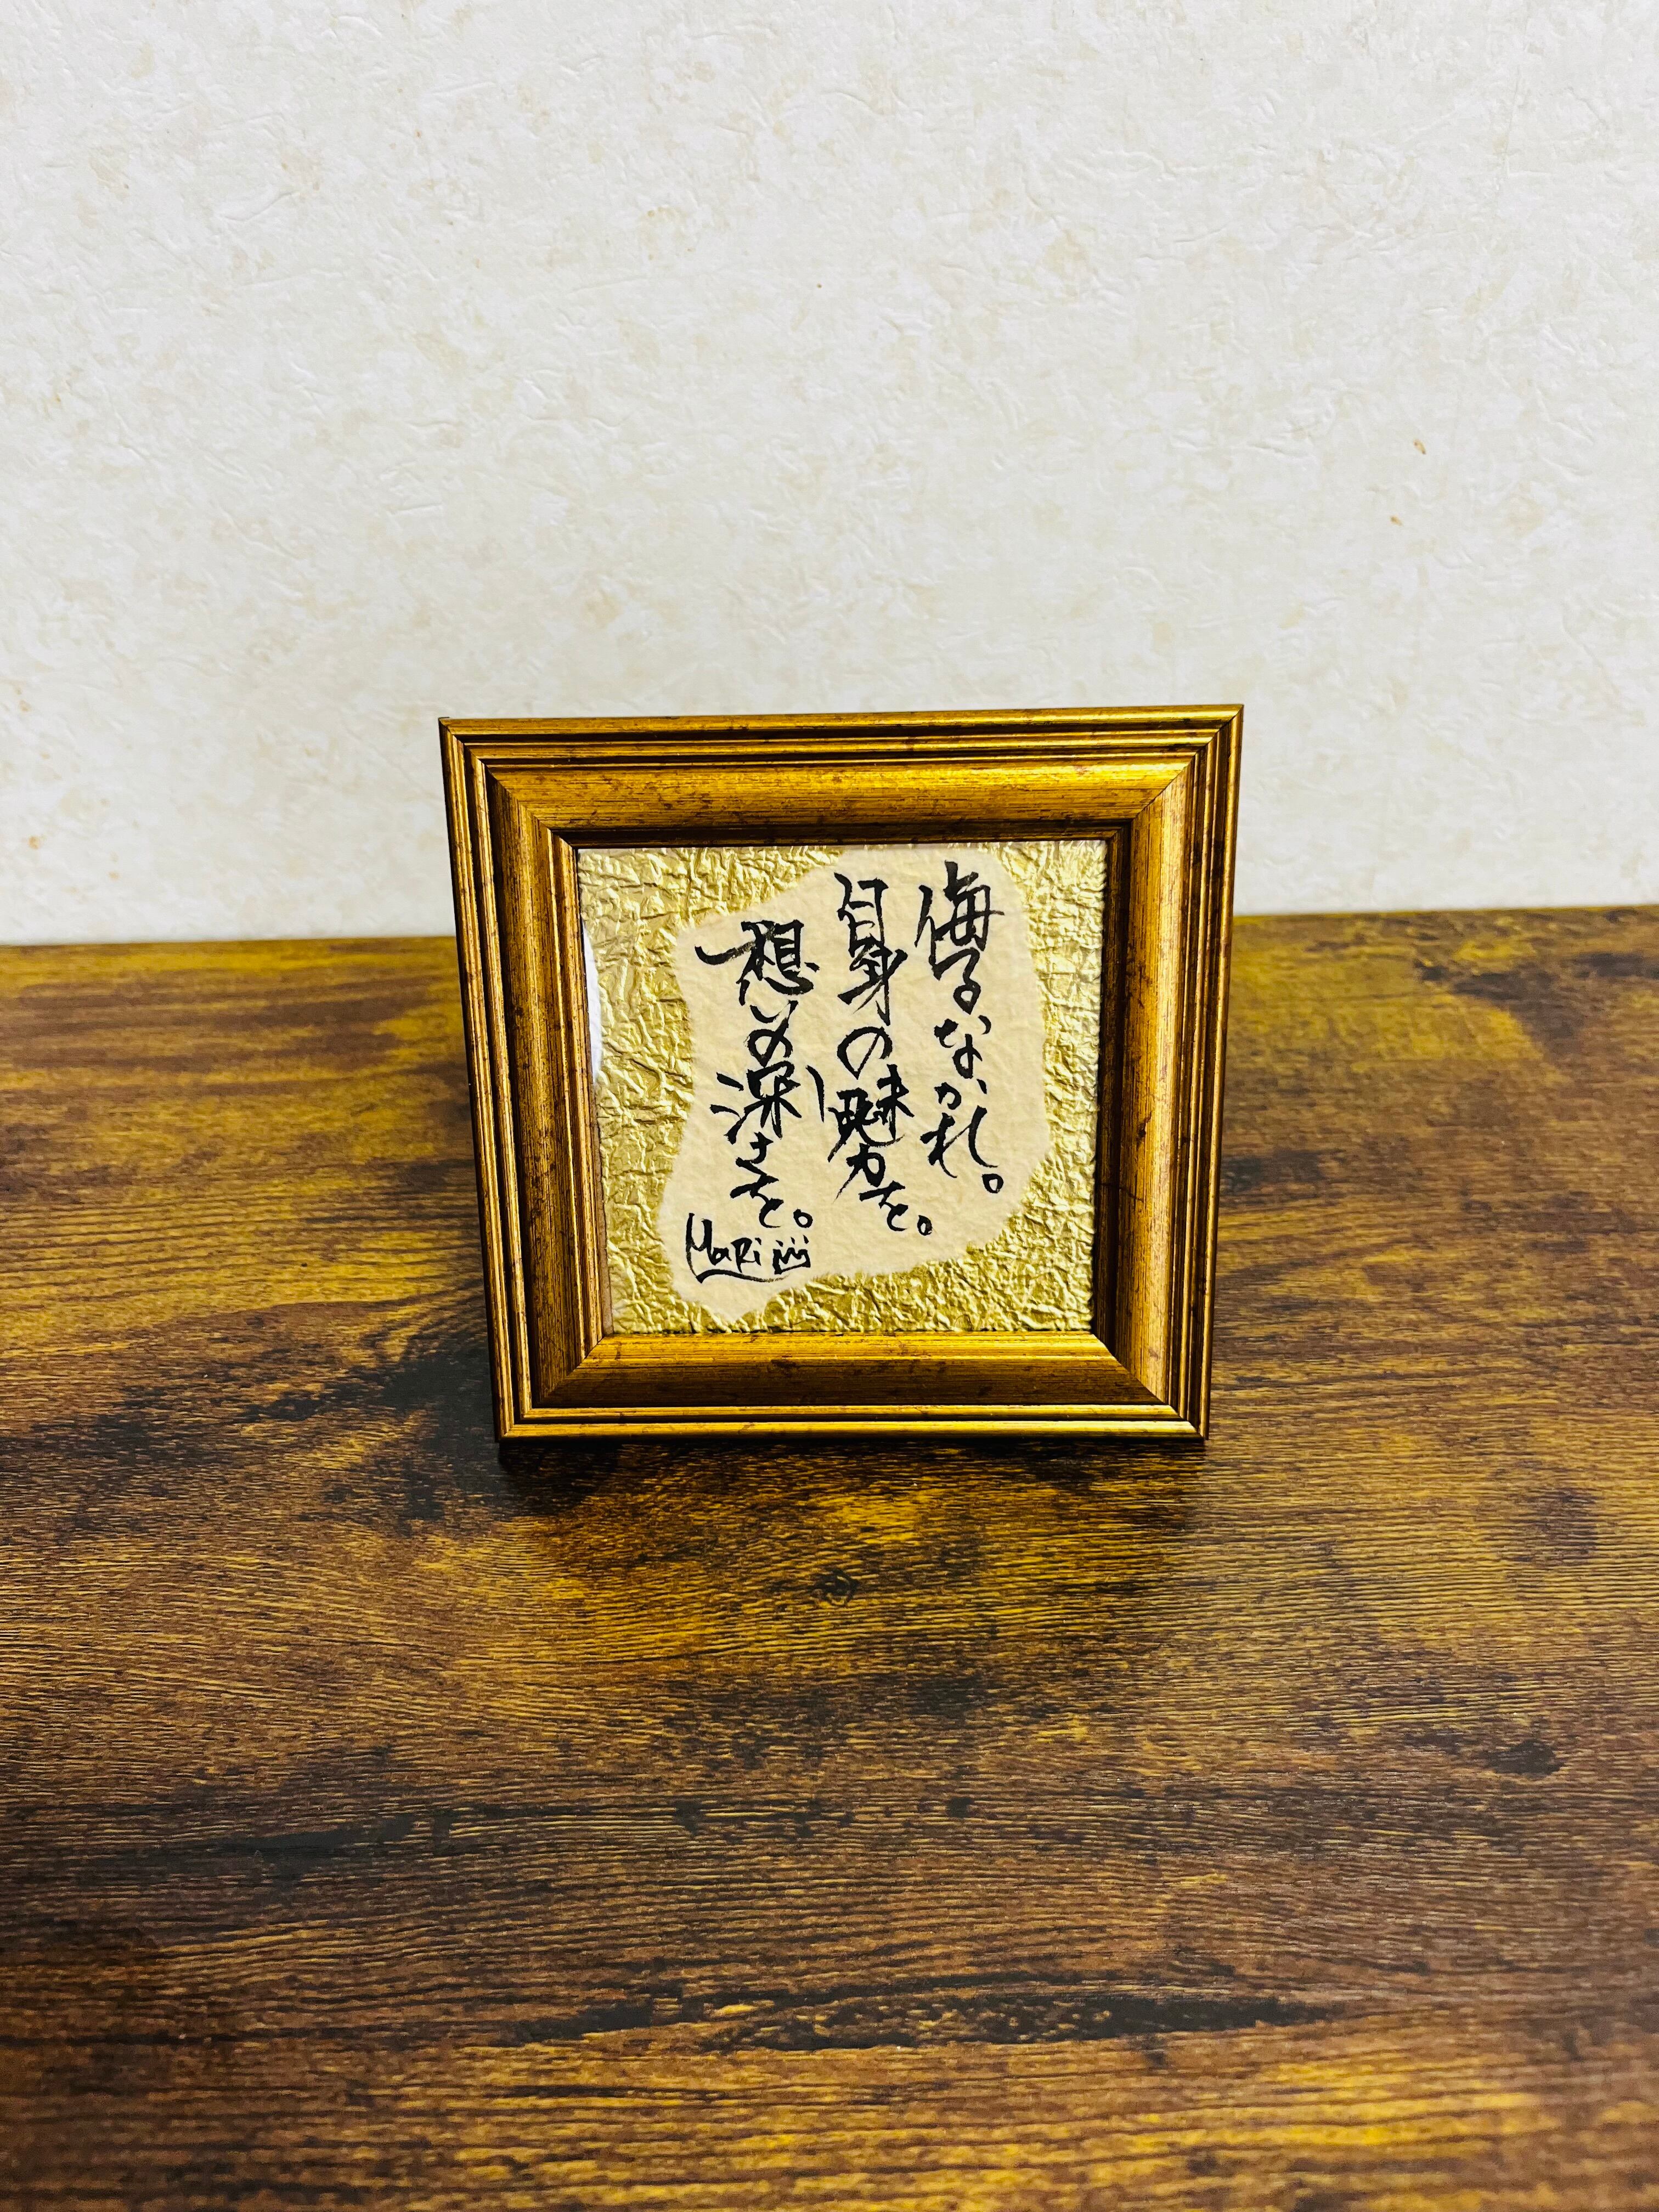 侮るなかれ。
自身の魅力を。
想いの深さを。
Mari